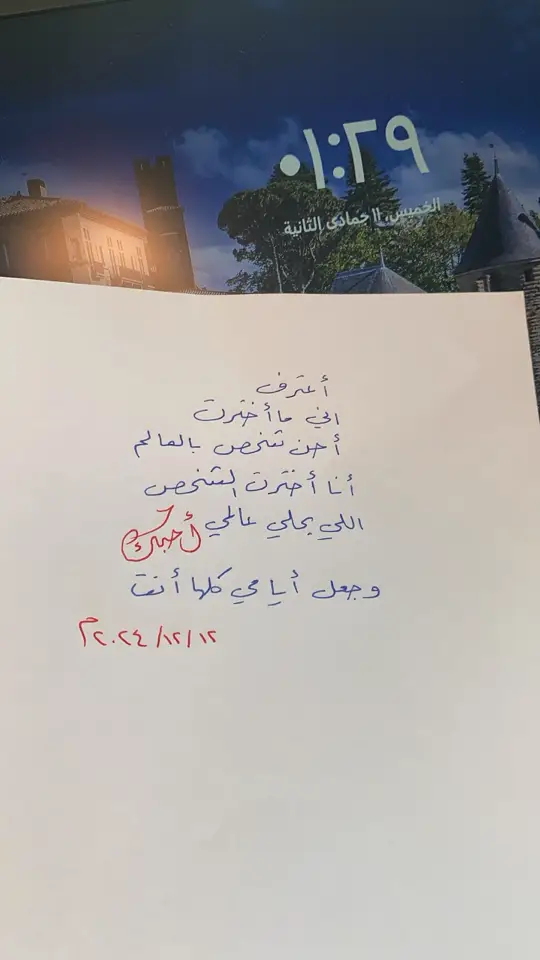 ٠١:٢٩
الخميس، ١١ جمادى الثانية
أعترف
اني ما أخترت
أحن شخص بالعالم
أنا أخترت الشخص
اللي يحلي عالمي أحبك
وجعل أيامي كلها أنت
٢٠٢٤/١٢/١٢م